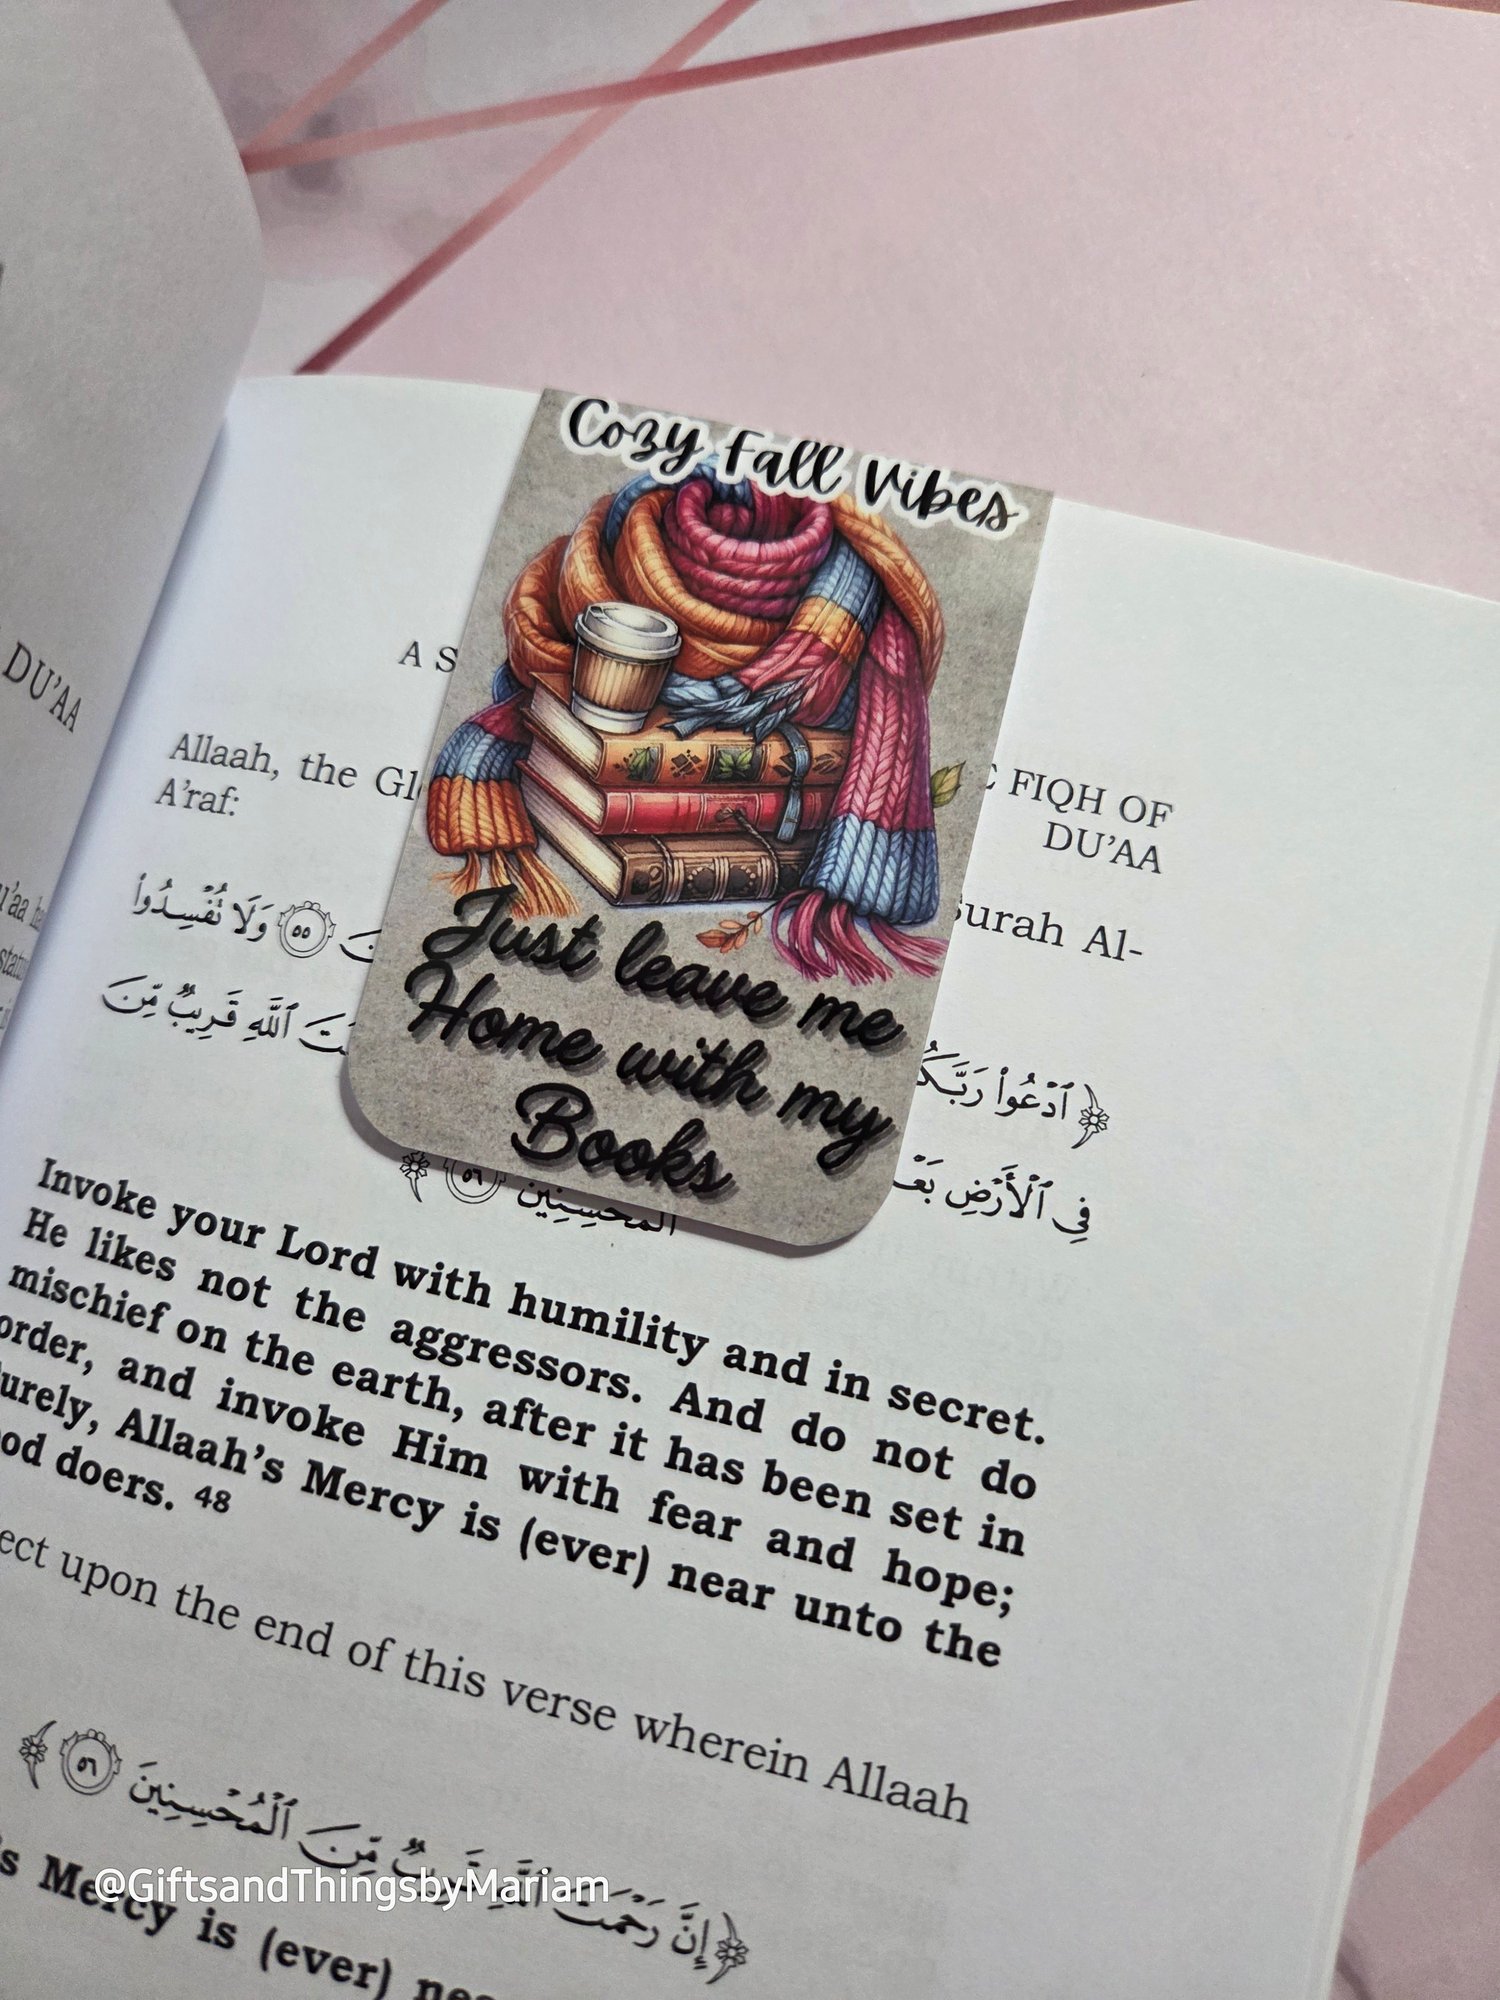 Cozy Fall Vibes
Just leave me
Home with my
Books
DU'AA
A S
FIQH OF
DU'AA
Allaah, the Gl
Surah Al-
A'raf:
﴿ ٱدْعُوا۟ رَبَّكُ
٥٥ وَلَا تُفْسِدُوا۟
فِي ٱلْأَرْضِ بَعْ
ٱللَّهِ قَرِيبٌ مِّنَ
ٱلْمُحْسِنِينَ ٥٦ ﴾
Invoke your Lord with humility and in secret.
He likes not the aggressors. And do not do
mischief on the earth, after it has been set in
order, and invoke Him with fear and hope;
urely, Allaah's Mercy is (ever) near unto the
od doers. 48
ect upon the end of this verse wherein Allaah
﴿ إِنَّ رَحْمَتَ ٱللَّهِ قَرِيبٌ مِّنَ ٱلْمُحْسِنِينَ ٥٦ ﴾
's Mercy is (ever) nea
@GiftsandThingsbyMariam